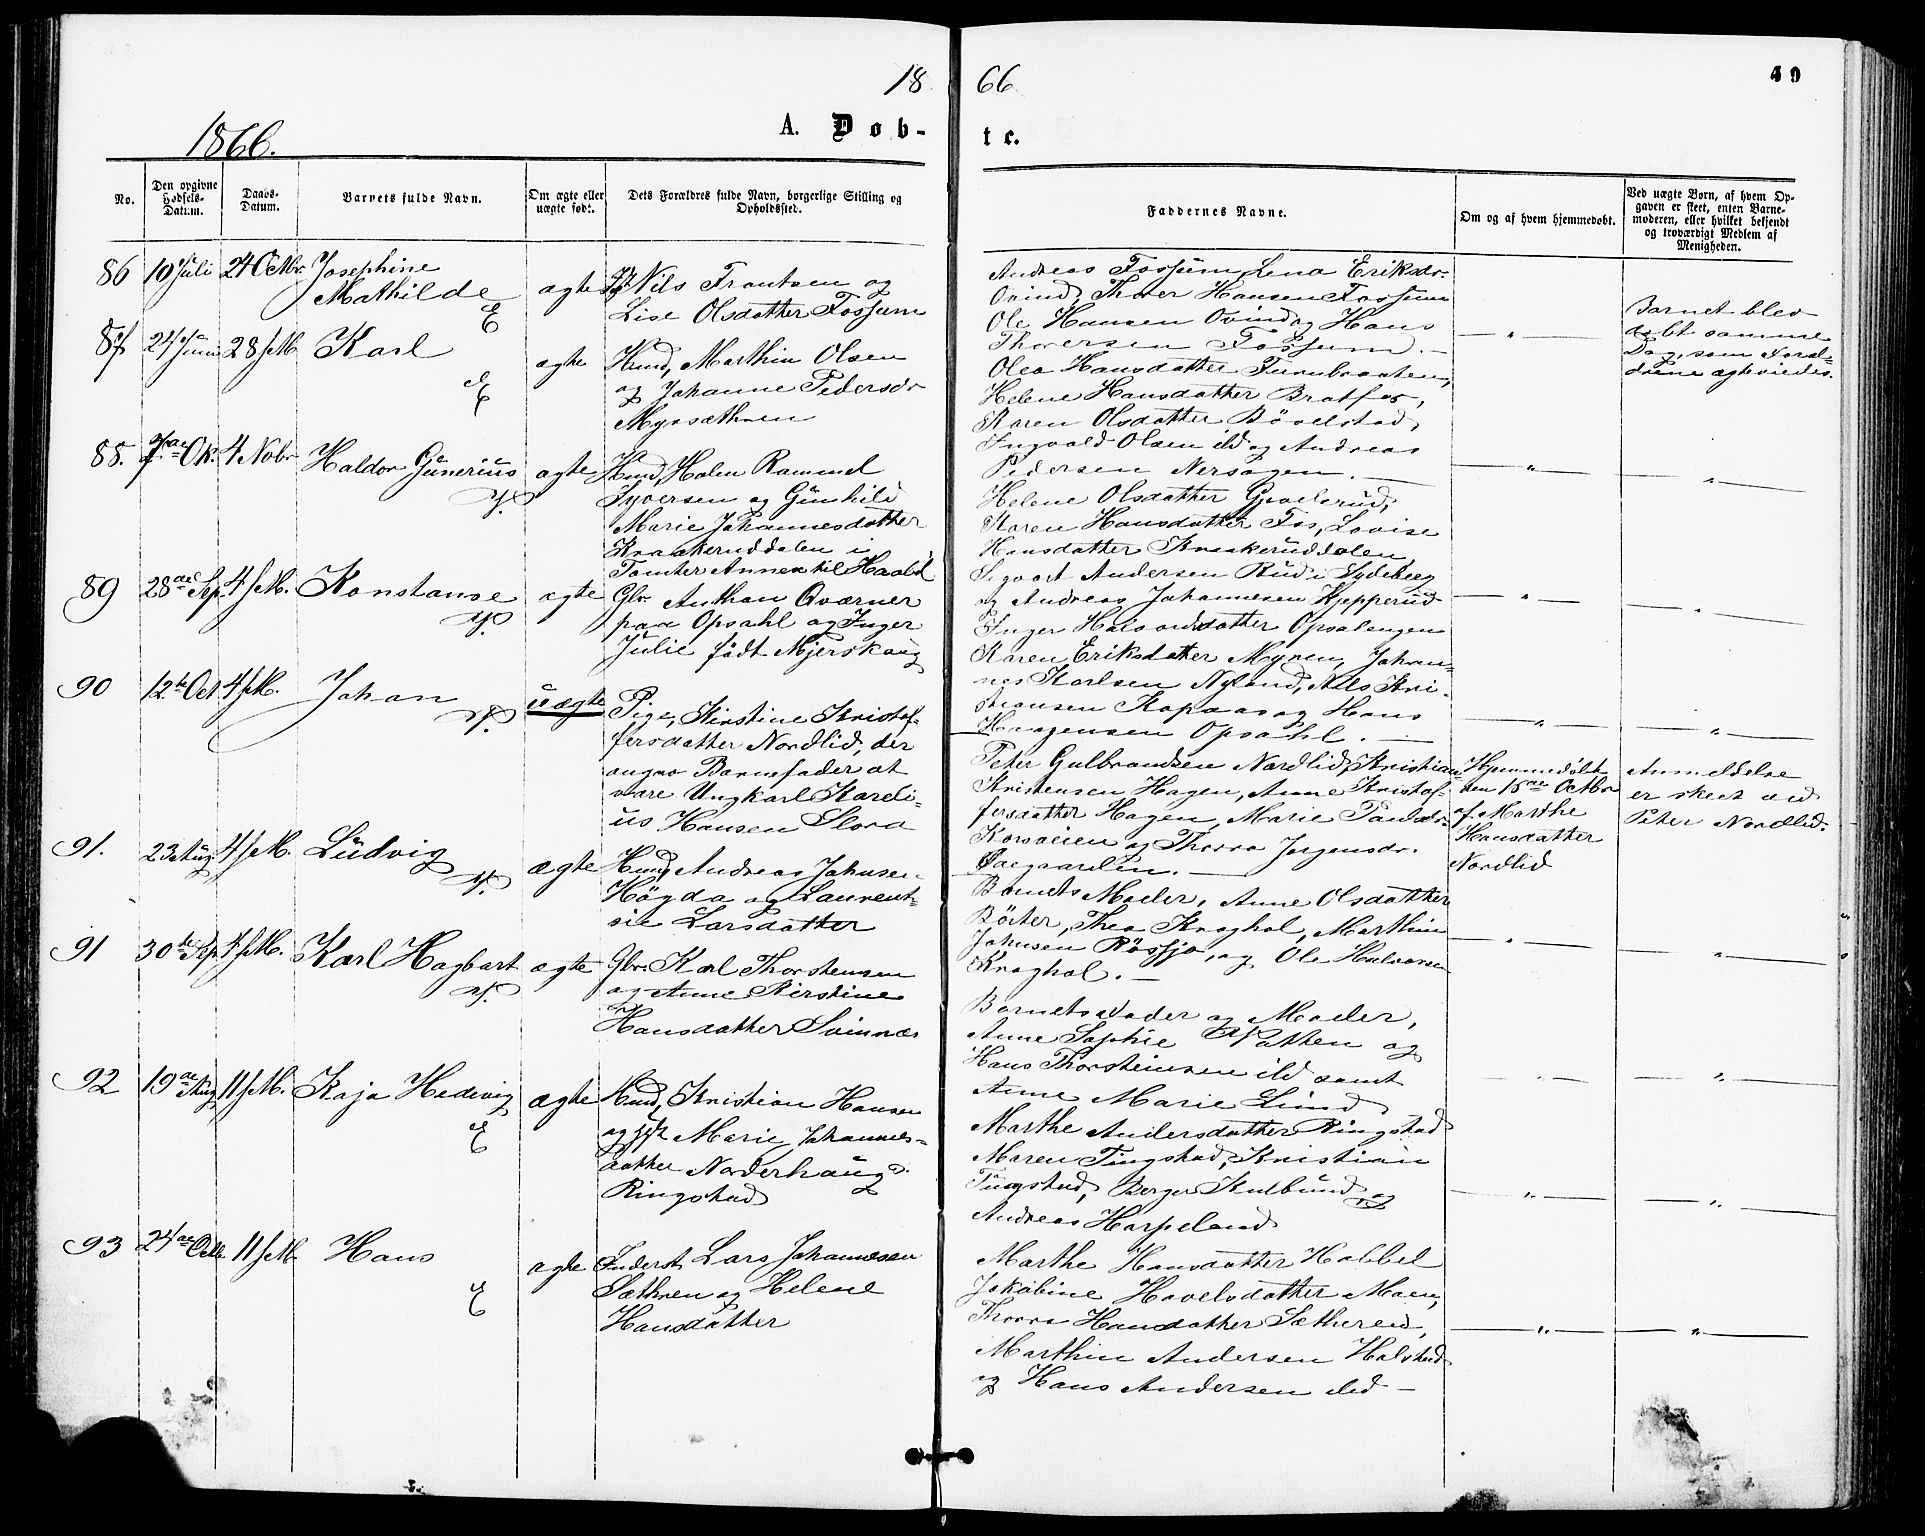 18
66
49
1866.
A. Døb-
te.
No.
Den opgivne Fødsels-Datum.
Daabs-Datum.
Barnets fulde Navn.
Om ægte eller uægte født.
Dets Forældres fulde Navn, borgerlige Stilling og Opholdssted.
Faddernes Navne.
Om og af hvem hjemmedøbt.
Ved uægte Børn, af hvem Opgaven er skeet, enten Barnemoderen, eller hvilket bekjendt og troværdigt Medlem af Menigheden.
86 10 Juli 24 Octbr Josephine
Mathilde
ægte
Nils Frantsen og
Lise Olsdatter Fossum
Andreas Fossum, Lena Eriksdr
Ovind, Thoer Hansen Fossum
Ole Hansen Ovind og Hans
Thoresen Fossum. —
— " —
Barnet blev
døbt samme
Dag, som Foræl-
drene ægteviedes.
87 24 Juni 28 s.M. Karl
ægte
Husmd, Marthin Olsen
og Johanne Pedersdr
Myrsæthren
Olea Hansdatter Furubraaten,
Helene Hansdatter Bratfos,
Karen Olsdatter Bövelstad,
Ingvald Olsen ibd og Andreas
Pedersen Nersagen. —
— " —
— " —
88. 7de Ok. 4 Nobr Haldor Gunerius
ægte
Husmd, Halen Rammel
Syversen og Gunhild
Marie Johannesdatter
Kraakeruddalen i
Tomter Annex til Haabøl
Helene Olsdatter Gjoelsrud,
Karen Hansdatter Fos, Lovise
Hansdatter Kraakeruddalen,
Sigvart Andersen Rud i Spydeberg
og Andreas Johannesen Kjepperud
— " —
— " —
89 28de Sep. 4 s.M. Konstanse
ægte
Gbr. Anthon Qværner
paa Opsahl og Inger
Julie født Mjerskaug
Inger Halvordsdatter Opsalengen
Karen Eriksdatter Myren, Johan-
nes Karlsen Nyland, Nils Kri-
stiansen Kopaas og Hans
Haagensen Opsahl. —
— " —
— " —
90 12te Oct 4 s.M. Johan
uægte
Pige, Kirstine Kristof-
fersdatter Nordlid, der
angav Barnefader at
være Ungkarl Kareli-
us Hansen Slora
Peter Gulbrandsen Nordlid, Kristian
Kristensen Hagen, Anne Kristof-
fersdatter Hagen, Marie Paulsdr
Korsveien og Thorra Jørgensdr.
Hjemmedøbt
den 15de Octbr
af Marthe
Hansdatter
Nordlid
Anmeldelse
er skeet ved
Peter Nordlid.
91. 23 Aug. 4 s.M. Ludvig
ægte
Husmd, Andreas Johnsen
Högda og Laurent-
sie Larsdatter
Barnets Moder, Anne Olsdatter
Börter, Thea Kraghol, Marthin
Johnsen Rössjø, og Ole Halvorsen
Kraghol. —
— " —
— " —
91 30te Sep. 4 s.M. Karl Hagbart
ægte
Gbr. Karl Thorstensen
og Anne Kirstine
Hansdatter Svinnæs
Barnets Fader og Moder,
Anne Sophie Natten og
Hans Thorsteinsen ibd samt
Anne Marie Lund
— " —
— " —
92 19de Aug 11 s.M. Kaja Hedevig
ægte
Husmd, Kristian Hansen
og Marie Johannes-
datter Norderhaug
Ringstad
Marthe Andersdatter Ringstad
Maren Tingstad, Kristian
Tingstad, Berger Kulbund, og
Andreas Harpeland
— " —
— " —
93 24de Octb 11 s.M. Hans
ægte
Inderst Lars Johannesen
Sæthren og Helene
Hansdatter
Marthe Hansdatter Habbel
Jakobine Hovelsdatter Moen,
Thorra Hansdatter Sætheren,
Marthin Andersen Holstad
og Hans Andersen ibid —
— " —
— " —